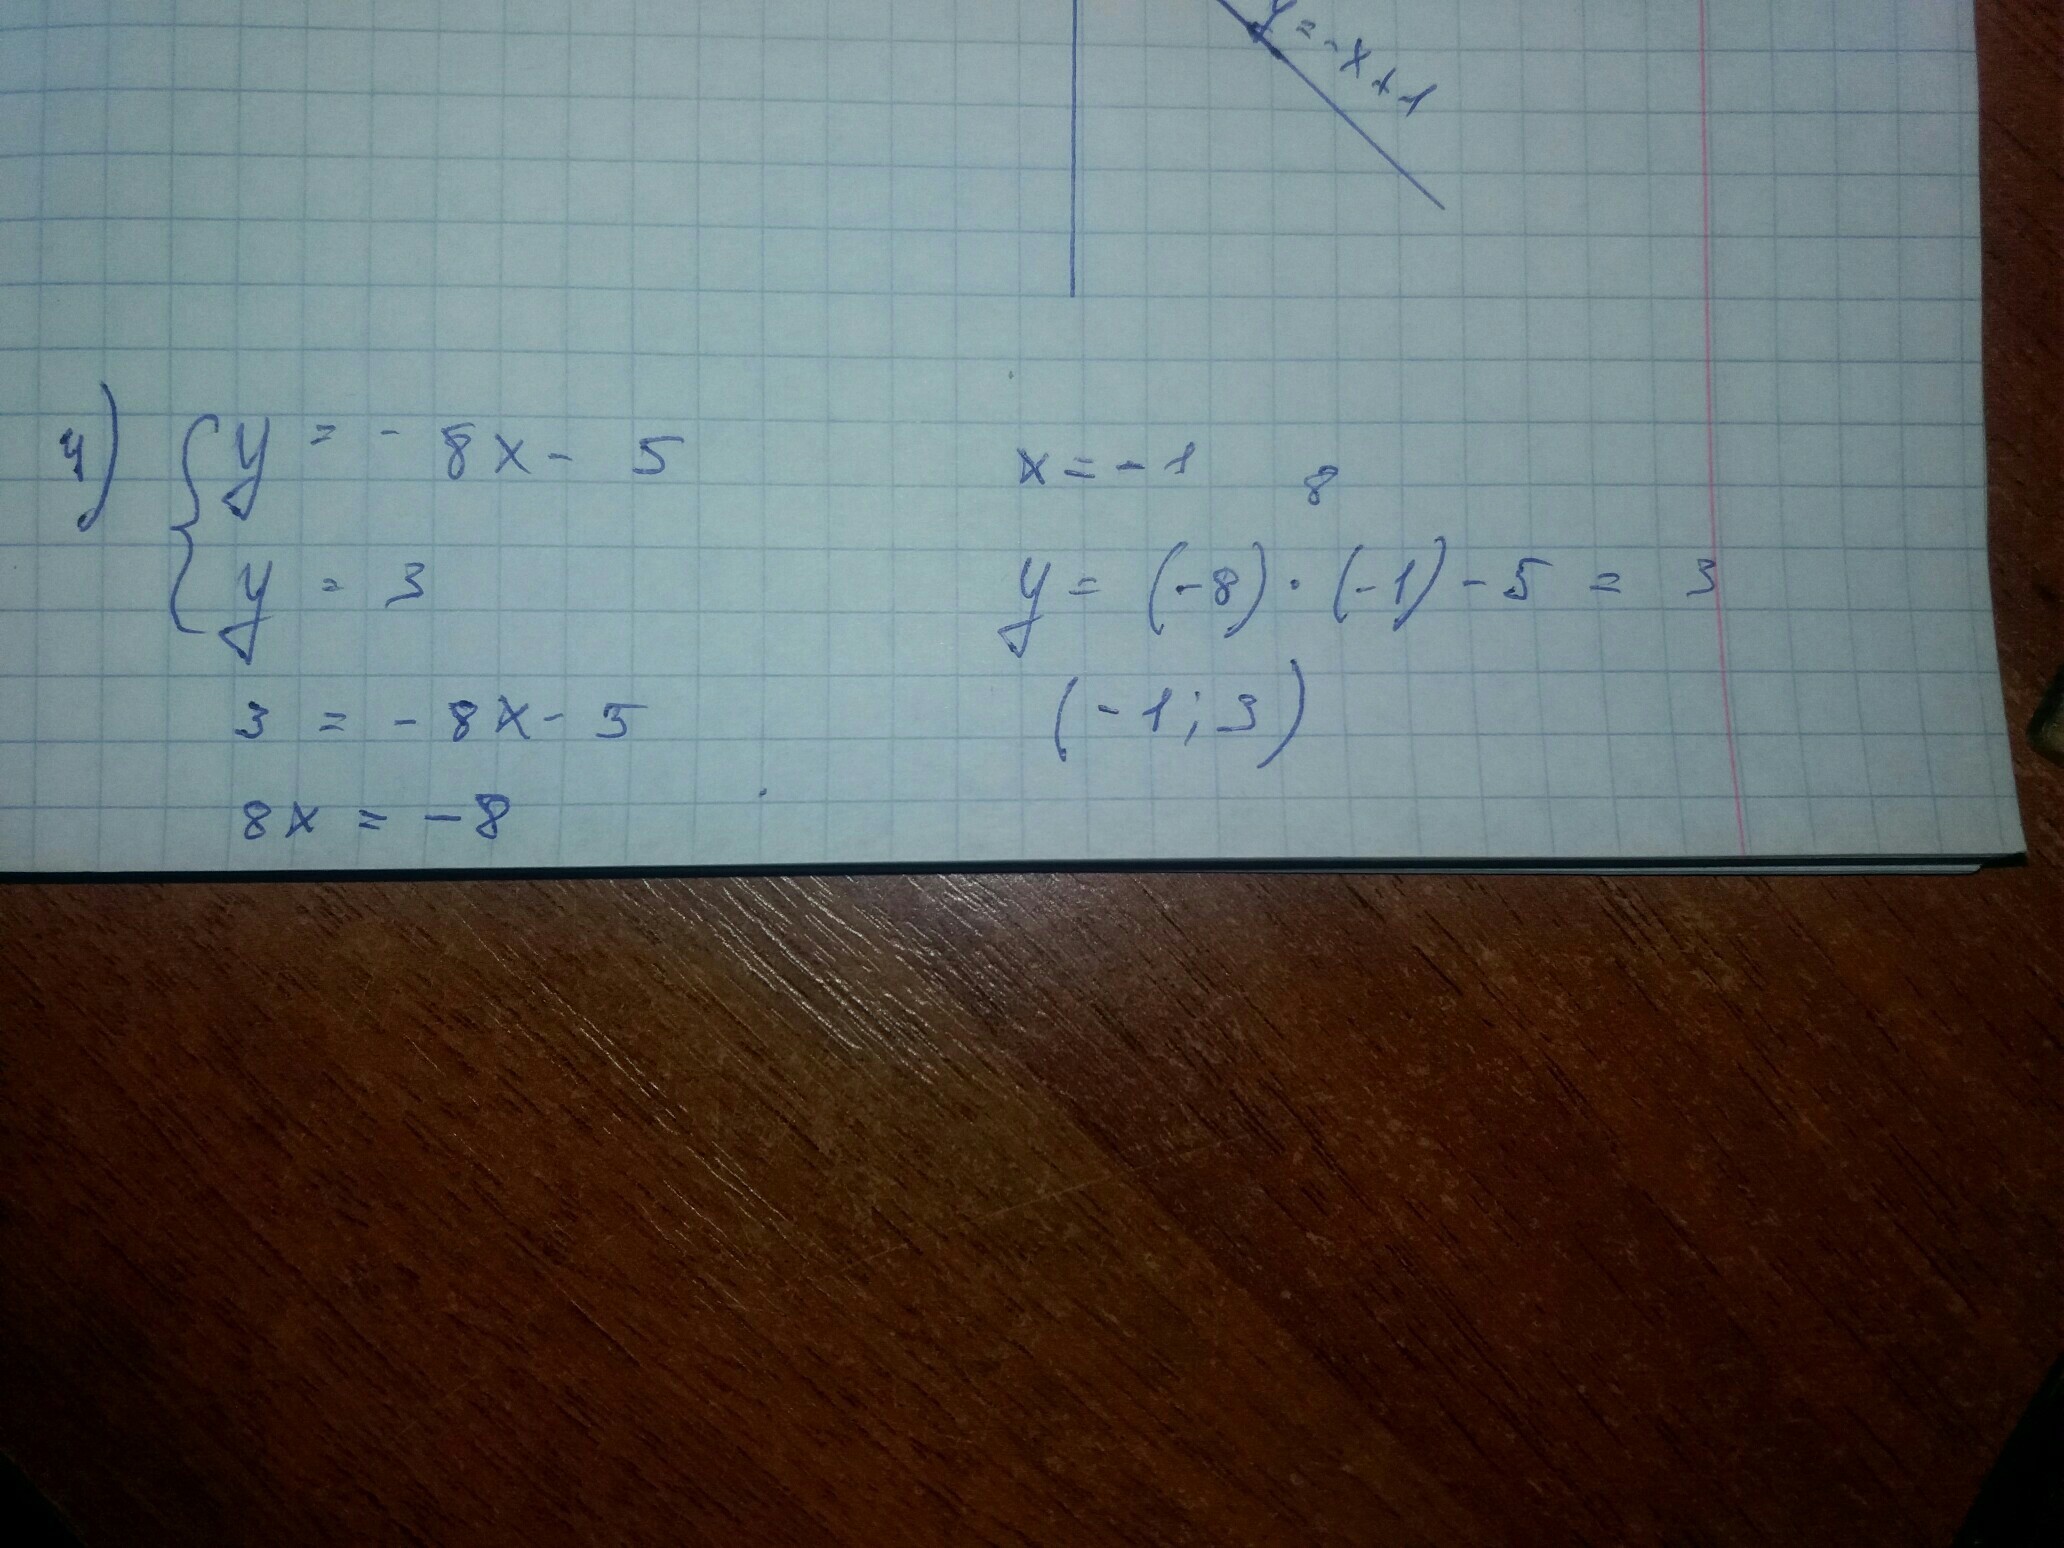 y = -x + 1
4) { y = - 8x - 5
y = 3
3 = - 8x - 5
8x = -8
x = - 1
8
y = (-8) · (-1) - 5 = 3
(-1; 3)